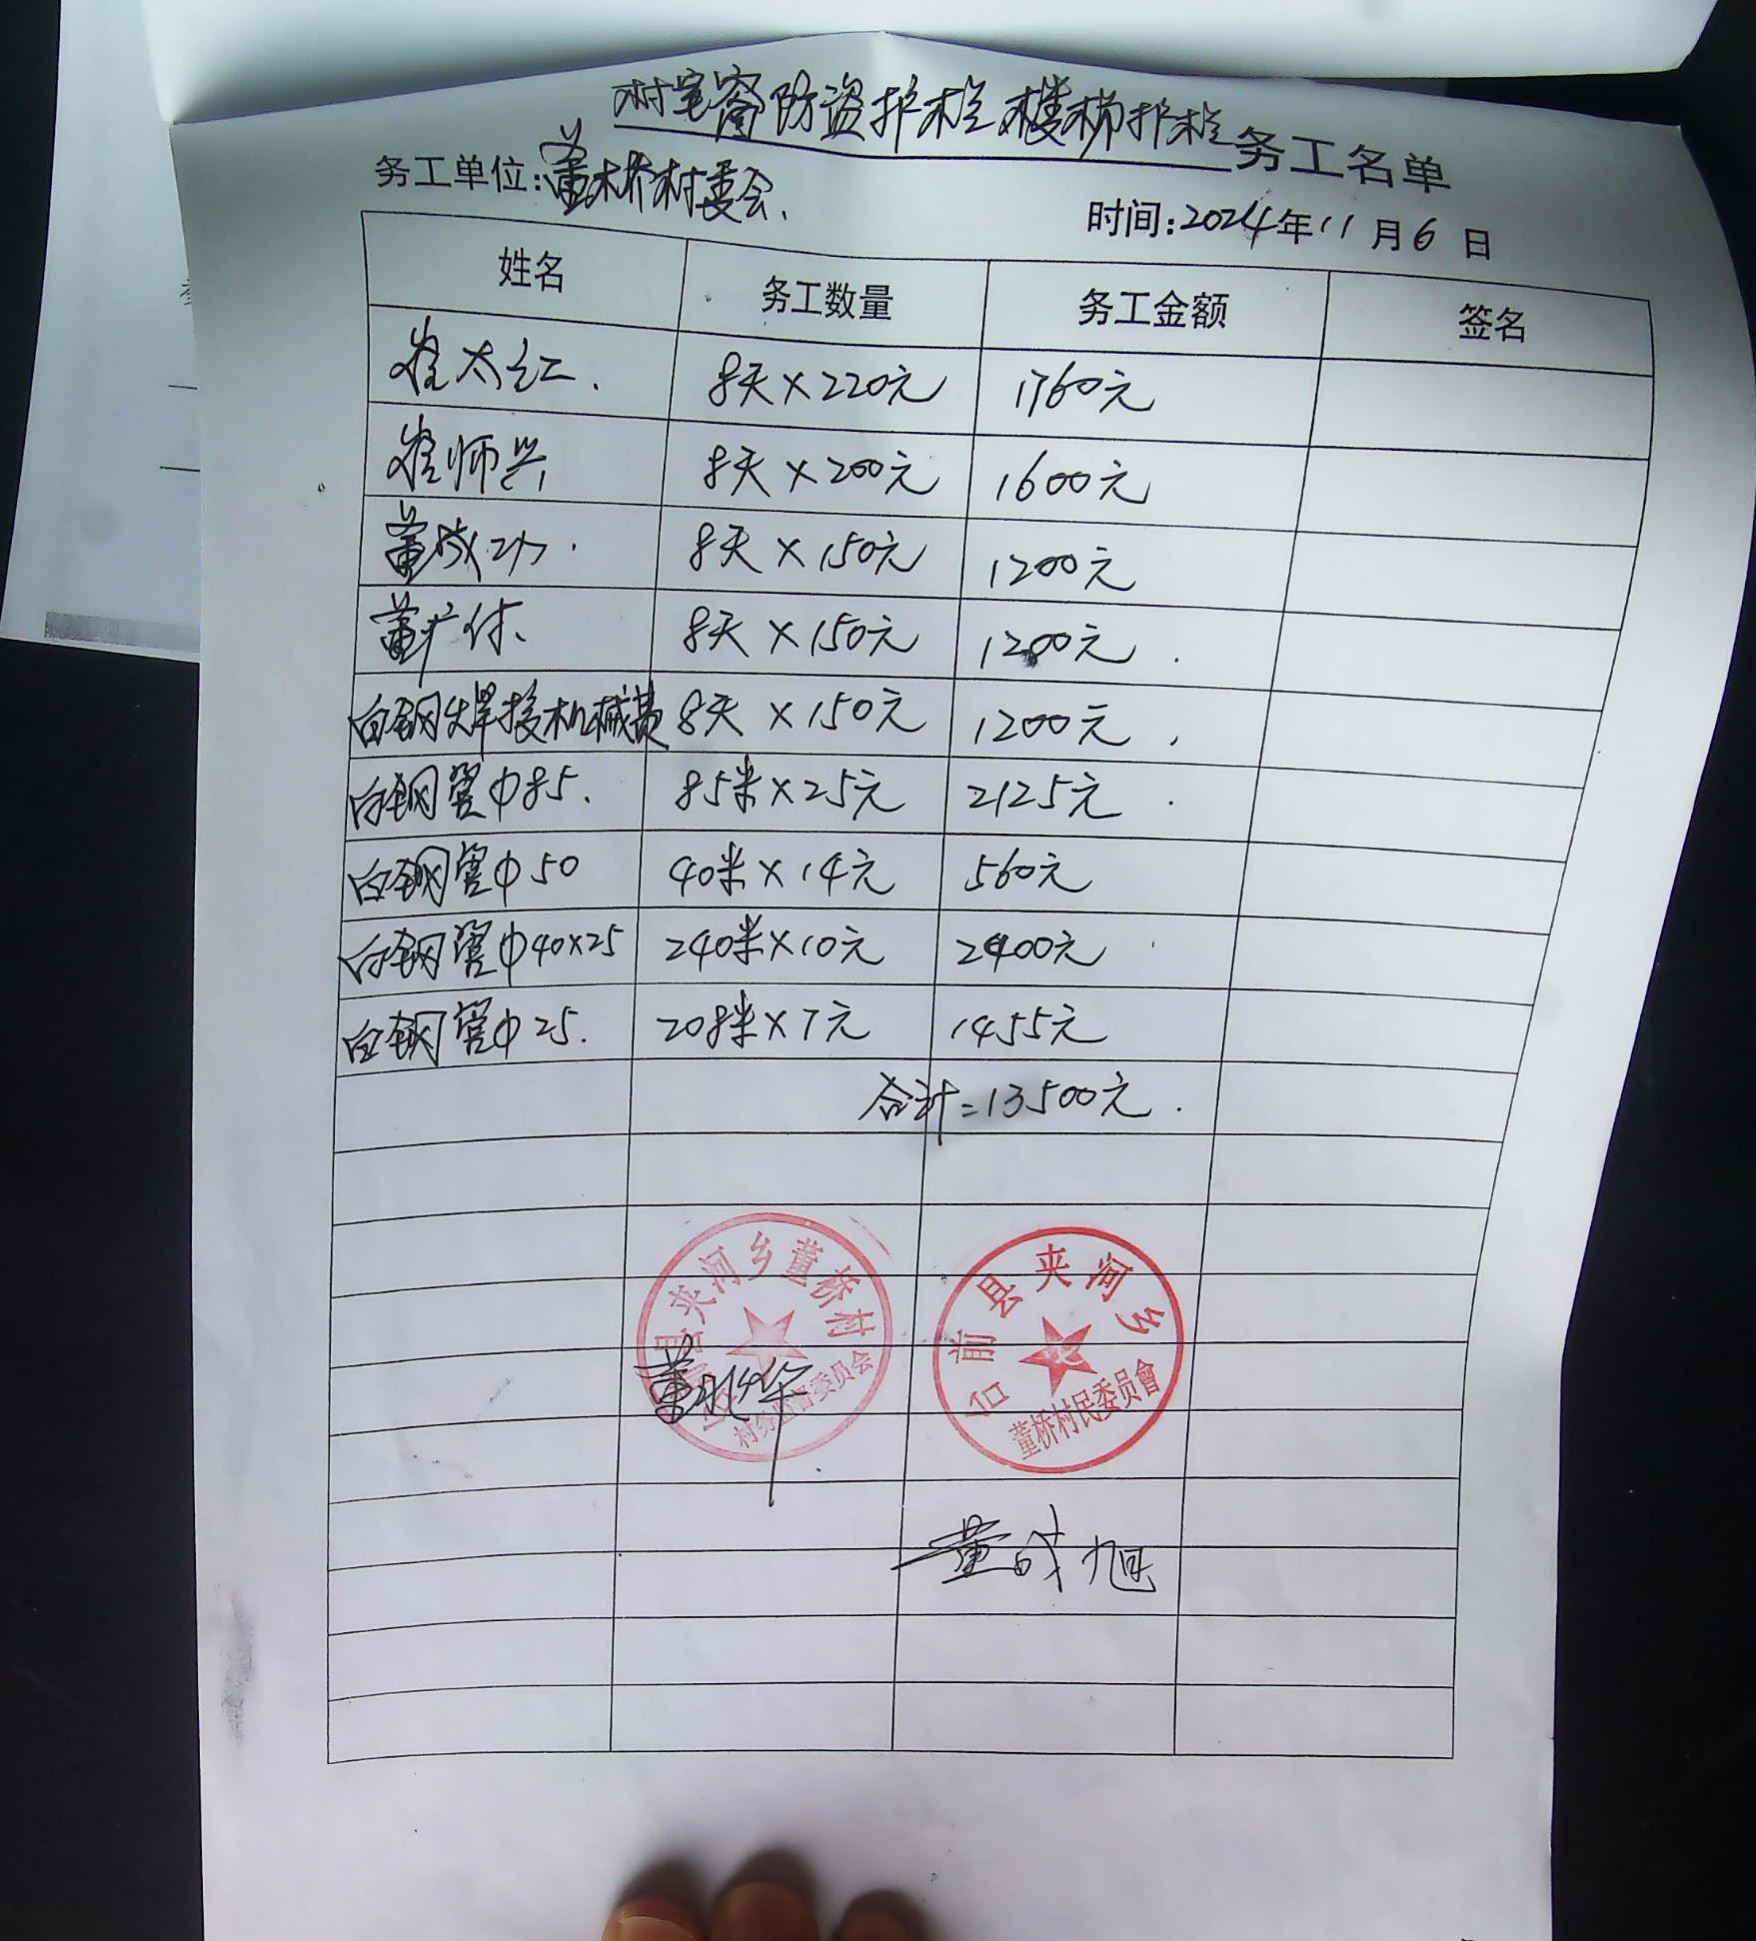 村宅窗防盗护栏楼梯护栏务工名单
务工单位:董桥村委会.
时间:2024年11月6日
姓名 务工数量 务工金额 签名
崔太红. 8天×220元 1760元
崔师兴 8天×200元 1600元
董成功. 8天×150元 1200元
董 8天×150元 1200元.
白钢焊接机械费 8天×150元 1200元.
白钢管Φ85. 85米×25元 2125元.
白钢管Φ50 40米×14元 560元
白钢管Φ40×25 240米×10元 2400元
白钢管Φ25. 208米×7元 1455元
合计=13500元.
台前县夹河乡董桥村
村务监督委员会
台前县夹河乡
董桥村民委员會
董兆华
董成旭